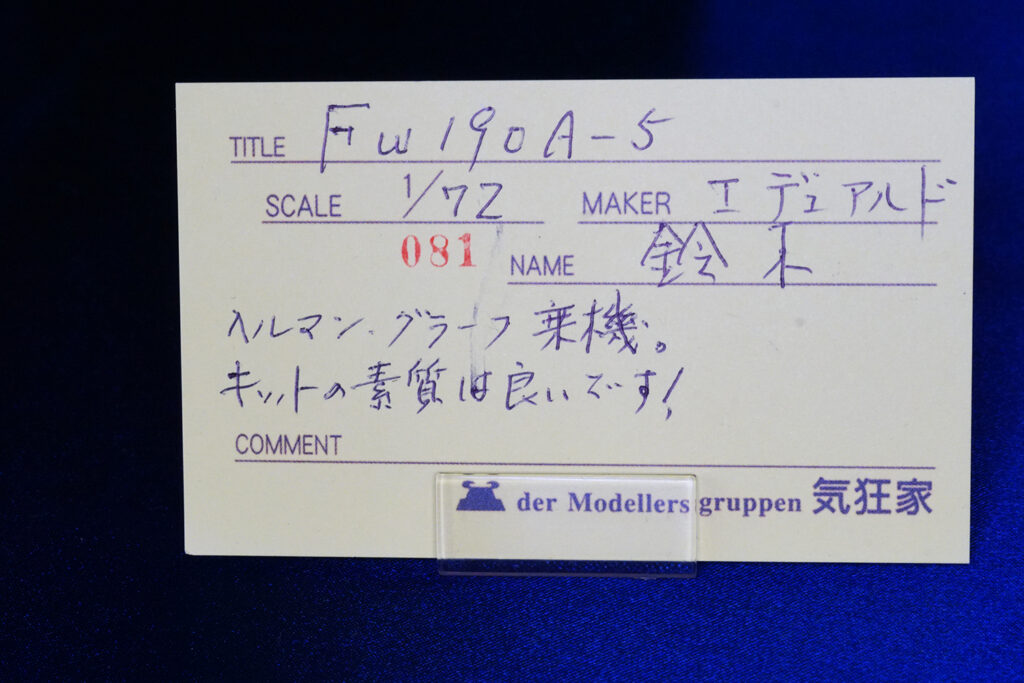 TITLE Fw190A-5
SCALE 1/72 MAKER エデュアルド
081 NAME 鈴木
ヘルマン・グラーフ乗機。
キットの素質は良いです!
COMMENT
der Modellers gruppen 気狂家